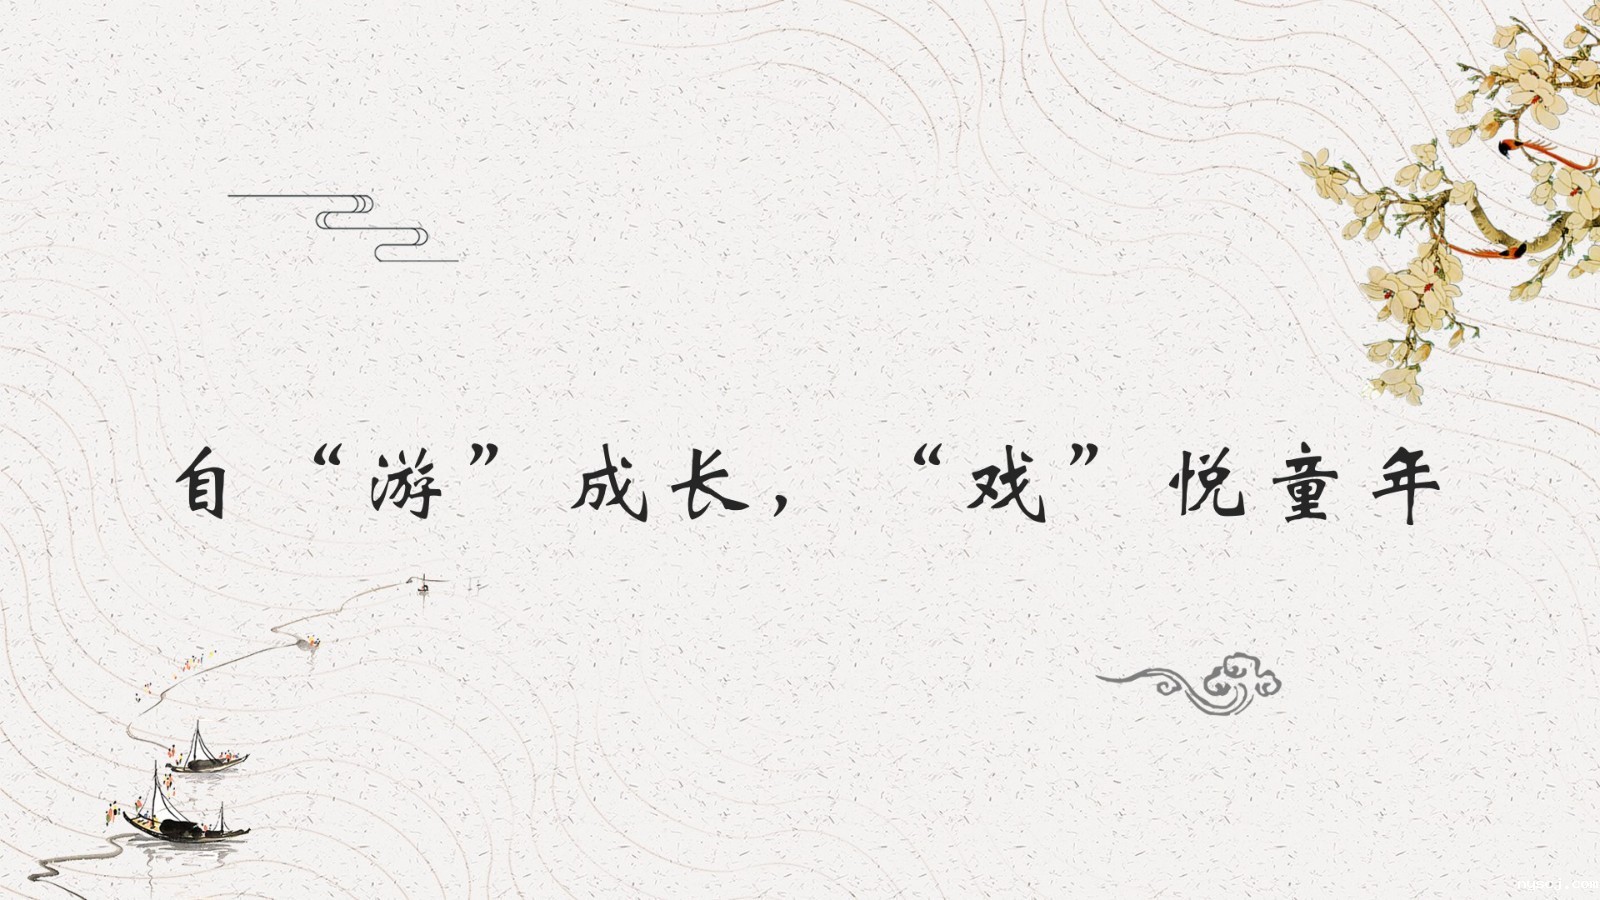 自“游”成长，“戏”悦童年